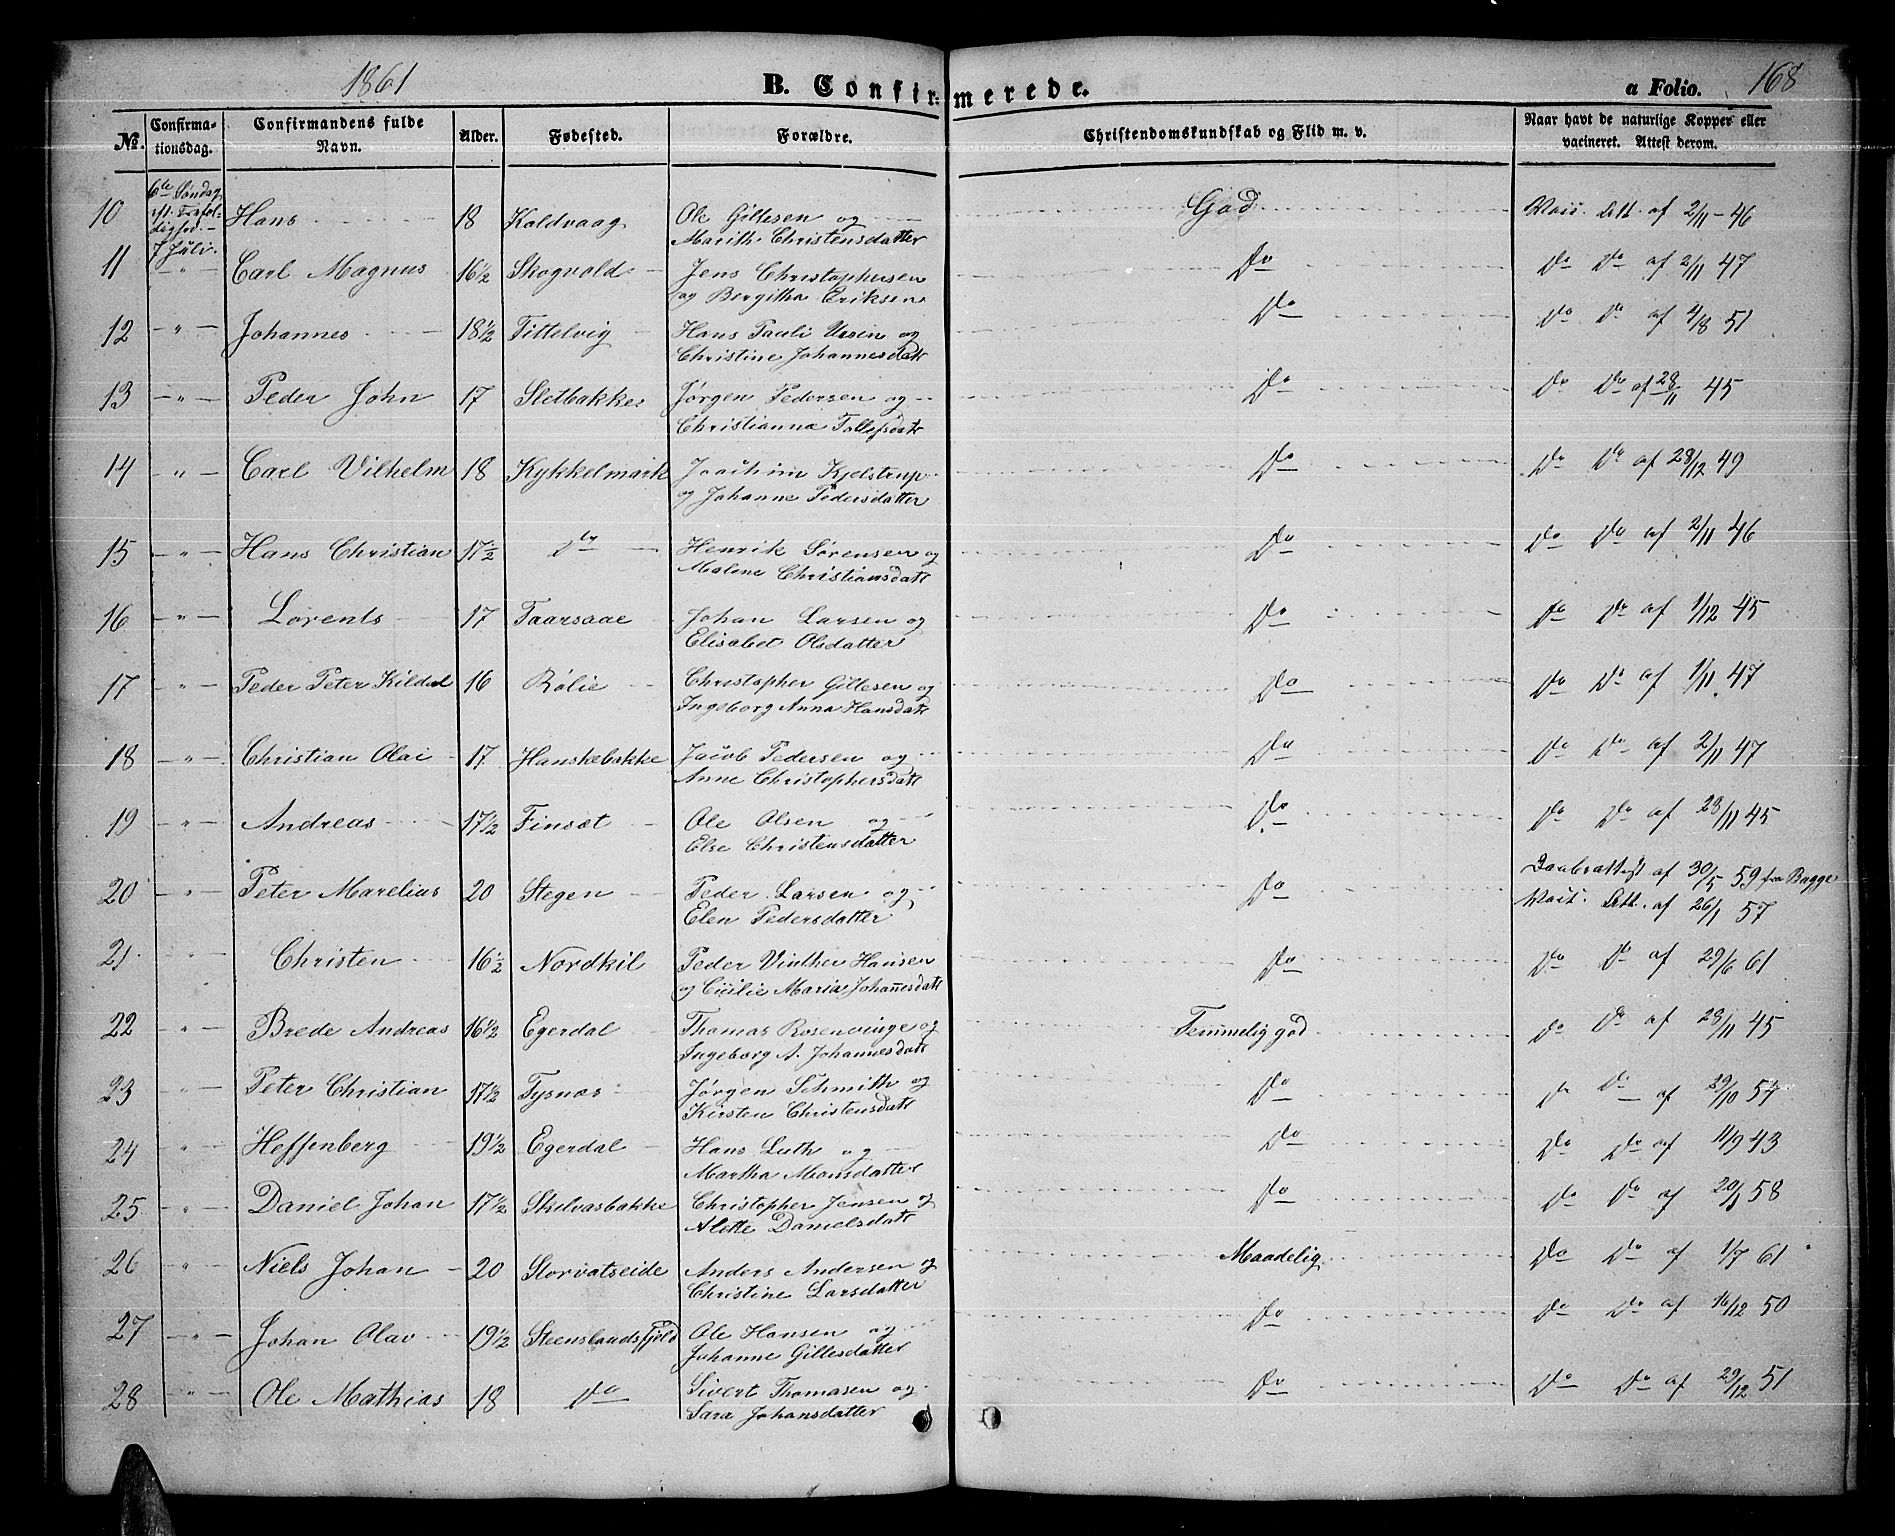 1861 B. Confirmerede. a Folio. 168
No. Confirmationsdag. Confirmandens fulde Navn. Alder. Fødested. Forældre. Christendomskundskab og Flid m. v. Naar havt de naturlige Kopper eller vacineret. Attest derom.
10 6te Søndag eft. Trefoldighed. 7 Juli. Hans 18 Kaldvaag Ole Gillesen og God Att. af 2/11 - 46
Marith Christensdatter
11 - " - Carl Magnus 16 1/2 Skogvold Jens Christophersen Do Do Do af 2/11 47
og Bergitha Eriksen
12 - " - Johannes 18 1/2 Tittelvig Hans Pauli og Do Do Do af 4/8 51
Christine Johannesdatt
13 - " - Peder John 17 Sletbakke Jørgen Pedersen og Do Do Do af 28/11 45
Christianna Tollefsdatt
14 " - Carl Vilhelm 18 Kykkelmark Joachim Kjelstrup Do Do Do af 28/12 49
og Johanne Pedersdatter
15 - " - Hans Christian 17 1/2 Do Henrik Sørensen og Do Do Do af 2/11 46
Malene Christiansdatt
16 - " - Lorents 17 Taarsaae Johan Larsen og Do Do Do af 1/12 45
Elisabet Olsdatter
17 " - Peder Peter Kildal 16 Rølie Christopher Gillesen og Do Do Do af 1/11 47
Ingeborg Anna Hansdatt
18 - " - Christian Olai 17 Hanskebakke Jacob Pedersen og Do Do Do af 2/11 47
Anne Christophersdatt
19 " - Andreas 17 1/2 Finsæt Ole Olsen og Do Do Do af 28/11 45
Else Christensdatter
20 " - Peter Marelius 20 Stegen Peder Larsen og Do Daabsattest af 30/5 59 fra Bugge
Elen Pedersdatter Att. af 26/1 57
21 " Christen 16 1/2 Nordkil Peder Vinther Hansen Do Do Do af 29/6 61
og Cicilie Maria Johannesdatt
22 " - Brede Andreas 16 1/2 Egerdal Thomas Rosenvinge og Temmelig god Do Do af 28/11 45
Ingeborg A. Johannesdatt
23 " - Peter Christian 17 1/2 Tysnæs Jørgen Schmith og Do Do Do af 29/10 57
Kirsten Christensdatt
24 " - Heffenberg 19 1/2 Egerdal Hans Luth og Do Do Do af 11/9 43
Martha Monsdatter
25 - " - Daniel Johan 17 1/2 Skilvasbakke Christopher Jensen og Do Do Do af 58
Alette Danielsdatt
26 " - Niels Johan 20 Storvatseide Anders Andersen og Maadelig Do Do af 1/7 61
Christine Larsdatter
27 - " - Johan Olav 19 1/2 Steenslandsfjeld Ole Hansen og Do Do Do af 16/12 50
Johanne Gillesdatter
28 - " - Ole Mathias 18 Do Sivert Thomasen og Do Do Do af 29/12 51
Sara Johansdatter